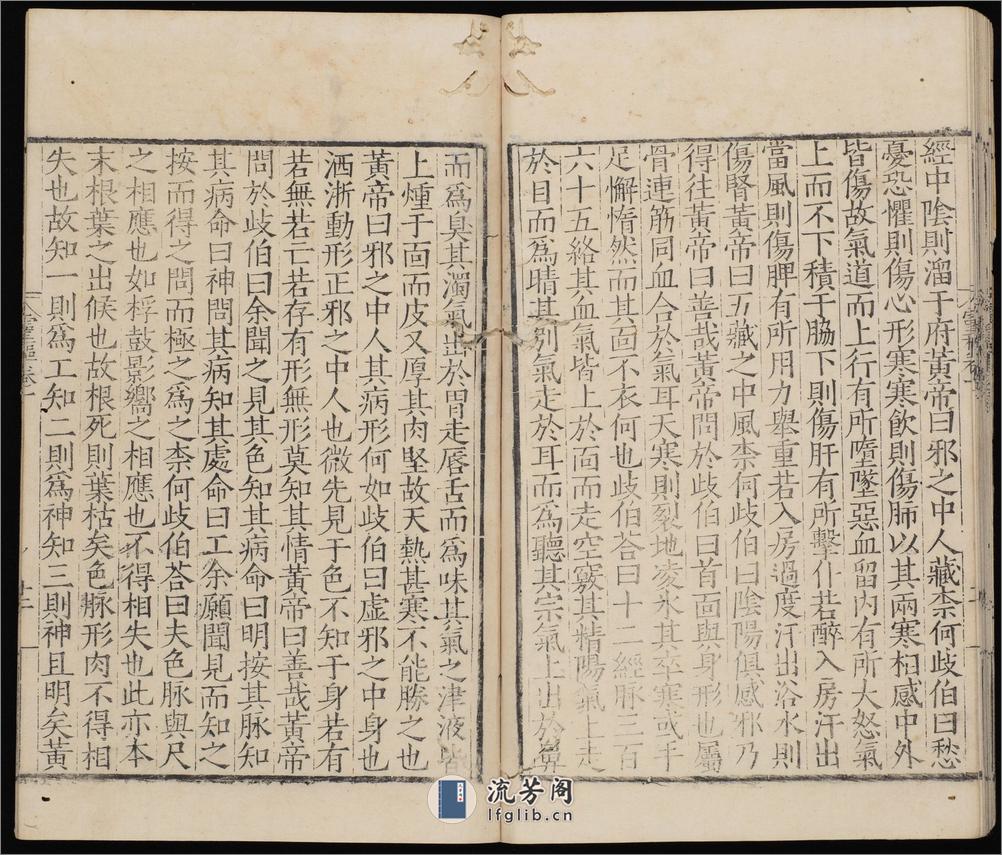 經中陰則溜于府黃帝曰邪之中人藏柰何歧伯曰愁
憂恐懼則傷心形寒寒飲則傷肺以其兩寒相感中外
皆傷故氣道而上行有所墮墜惡血留内有所大怒氣
上而不下積于脇下則傷肝有所擊仆若醉入房汗出
當風則傷脾有所用力舉重若入房過度汗出浴水則
傷腎黃帝曰五藏之中風柰何歧伯曰陰陽俱感邪乃
得往黃帝曰善哉黃帝問於歧伯曰首面與身形也屬
骨連筋同血合於氣耳天寒則裂地凌氷其卒寒或手
足懈惰然而其面不衣何也歧伯荅曰十二經脉三百
六十五絡其血氣皆上於面而走空竅其精陽氣上走
於目而爲睛其别氣走於耳而爲聽其宗氣上出於鼻
而爲臭其濁氣出於胃走唇舌而爲味其氣之津液皆
上煄于面而皮又厚其肉堅故天熱甚寒不能勝之也
黃帝曰邪之中人其病形何如歧伯曰虛邪之中身也
洒淅動形正邪之中人也微先見于色不知于身若有
若無若亡若存有形無形莫知其情黃帝曰善哉黃帝
問於歧伯曰余聞之見其色知其病命曰明按其脉知
其病命曰神問其病知其處命曰工余願聞見而知之
按而得之問而極之爲之柰何歧伯荅曰夫色脉與尺
之相應也如桴鼓影響之相應也不得相失也此亦本
末根葉之出候也故根死則葉枯矣色脉形肉不得相
失也故知一則爲工知二則爲神知三則神且明矣黃
流芳阁
lfglib.cn